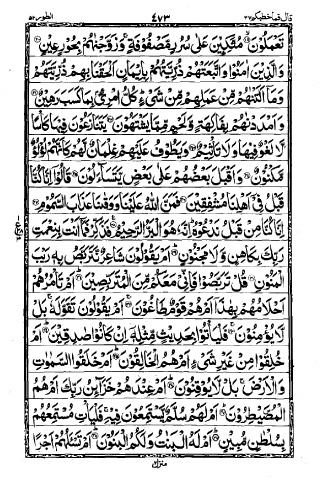 قال فما خطبكم ٢٧ ٤٧٣ الطور ٥٢
تَعْمَلُوْنَ ۙ مُتَّكِـِٕيْنَ عَلٰى سُرُرٍ مَّصْفُوْفَةٍ ۚ وَزَوَّجْنٰهُمْ بِحُوْرٍ عِيْنٍ
وَالَّذِيْنَ اٰمَنُوْا وَاتَّبَعَتْهُمْ ذُرِّيَّتُهُمْ بِاِيْمَانٍ اَلْحَقْنَا بِهِمْ ذُرِّيَّتَهُمْ
وَمَاۤ اَلَتْنٰهُمْ مِّنْ عَمَلِهِمْ مِّنْ شَيْءٍ ؕ كُلُّ امْرِئٍۢ بِمَا كَسَبَ رَهِيْنٌ
وَاَمْدَدْنٰهُمْ بِفَاكِهَةٍ وَّلَحْمٍ مِّمَّا يَشْتَهُوْنَ يَتَنَازَعُوْنَ فِيْهَا كَاْسًا
لَّا لَغْوٌ فِيْهَا وَلَا تَاْثِيْمٌ وَيَطُوْفُ عَلَيْهِمْ غِلْمَانٌ لَّهُمْ كَاَنَّهُمْ لُؤْلُؤٌ
مَّكْنُوْنٌ وَاَقْبَلَ بَعْضُهُمْ عَلٰى بَعْضٍ يَّتَسَآءَلُوْنَ قَالُوْۤا اِنَّا كُنَّا
قَبْلُ فِيْۤ اَهْلِنَا مُشْفِقِيْنَ فَمَنَّ اللّٰهُ عَلَيْنَا وَوَقٰىنَا عَذَابَ السَّمُوْمِ
اِنَّا كُنَّا مِنْ قَبْلُ نَدْعُوْهُ ؕ اِنَّهٗ هُوَ الْبَرُّ الرَّحِيْمُ فَذَكِّرْ فَمَاۤ اَنْتَ بِنِعْمَتِ
رَبِّكَ بِكَاهِنٍ وَّلَا مَجْنُوْنٍ اَمْ يَقُوْلُوْنَ شَاعِرٌ نَّتَرَبَّصُ بِهٖ رَيْبَ
الْمَنُوْنِ قُلْ تَرَبَّصُوْا فَاِنِّيْ مَعَكُمْ مِّنَ الْمُتَرَبِّصِيْنَ اَمْ تَاْمُرُهُمْ
اَحْلَامُهُمْ بِهٰذَاۤ اَمْ هُمْ قَوْمٌ طَاغُوْنَ اَمْ يَقُوْلُوْنَ تَقَوَّلَهٗ ۚ بَلْ
لَّا يُؤْمِنُوْنَ فَلْيَاْتُوْا بِحَدِيْثٍ مِّثْلِهٖۤ اِنْ كَانُوْا صٰدِقِيْنَ اَمْ
خُلِقُوْا مِنْ غَيْرِ شَيْءٍ اَمْ هُمُ الْخٰلِقُوْنَ اَمْ خَلَقُوا السَّمٰوٰتِ
وَالْاَرْضَ ۚ بَلْ لَّا يُوْقِنُوْنَ اَمْ عِنْدَهُمْ خَزَآئِنُ رَبِّكَ اَمْ هُمُ
الْمُصَۜيْطِرُوْنَ اَمْ لَهُمْ سُلَّمٌ يَّسْتَمِعُوْنَ فِيْهِ ۚ فَلْيَاْتِ مُسْتَمِعُهُمْ
بِسُلْطٰنٍ مُّبِيْنٍ اَمْ لَهُ الْبَنٰتُ وَلَكُمُ الْبَنُوْنَ اَمْ تَسْـَٔلُهُمْ اَجْرًا